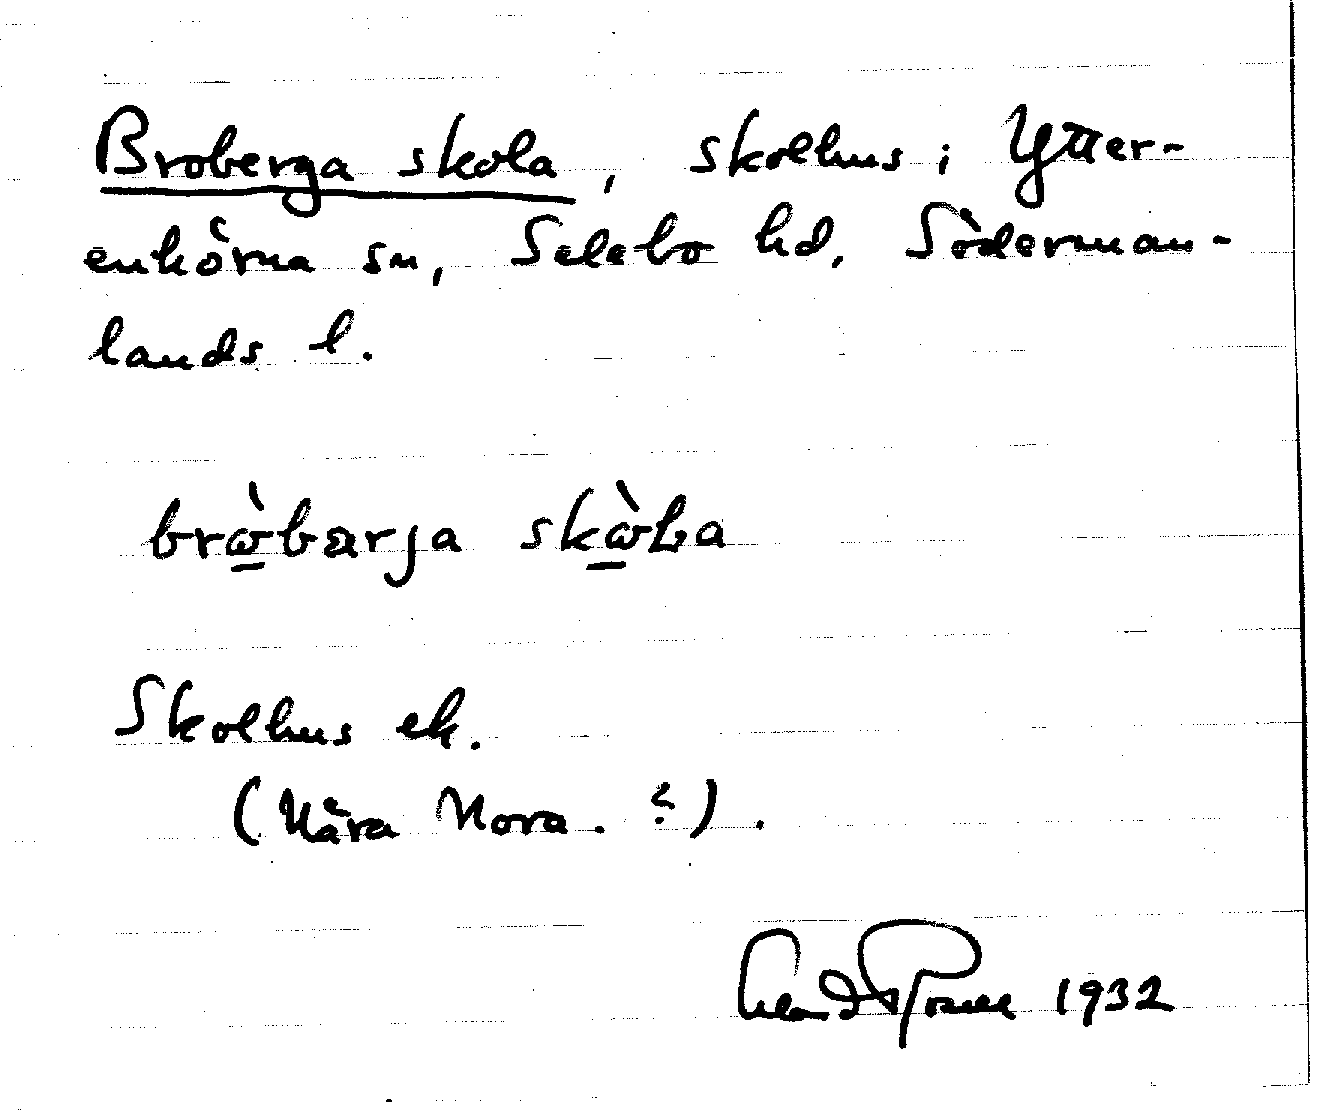 Broberga skola, skolhus i Ytter-
enhörna sn, Selebo hd, Söderman-
lands l.
brὼ̲barja skὼ̲ƚa
Skolhus ek.
(Nära Mora. ?).
1932